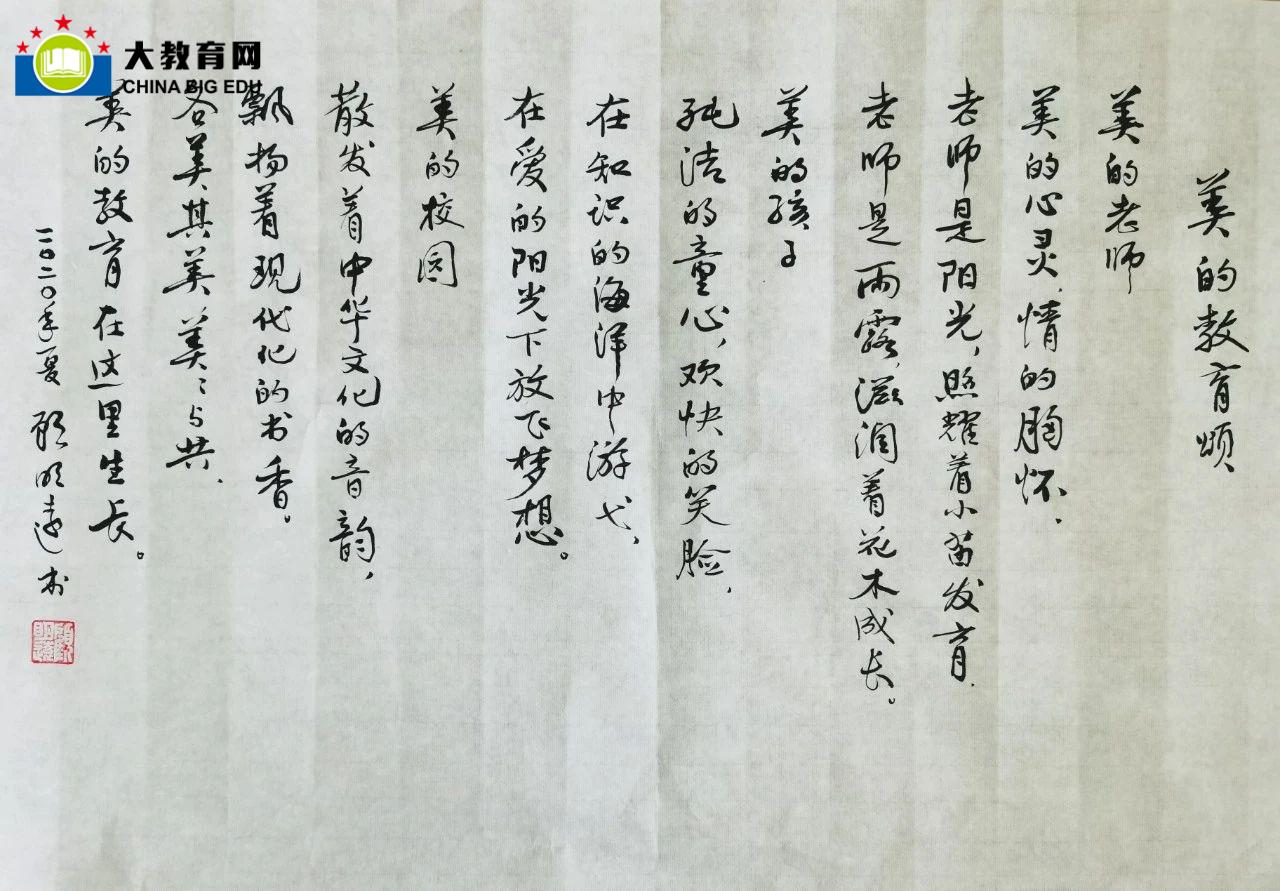 大教育网
CHINA BIG EDU
美的教育颂
美的老师
美的心灵,情的胸怀,
老师是阳光,照耀着小苗发育,
老师是雨露,滋润着花木成长。
美的孩子
纯洁的童心,欢快的笑脸,
在知识的海洋中游弋,
在爱的阳光下放飞梦想。
美的校园
散发着中华文化的音韵,
飘扬着现代化的书香。
各美其美 美〻与共,
美的教育在这里生长。
二〇二〇年夏 顾明远书
顾明远